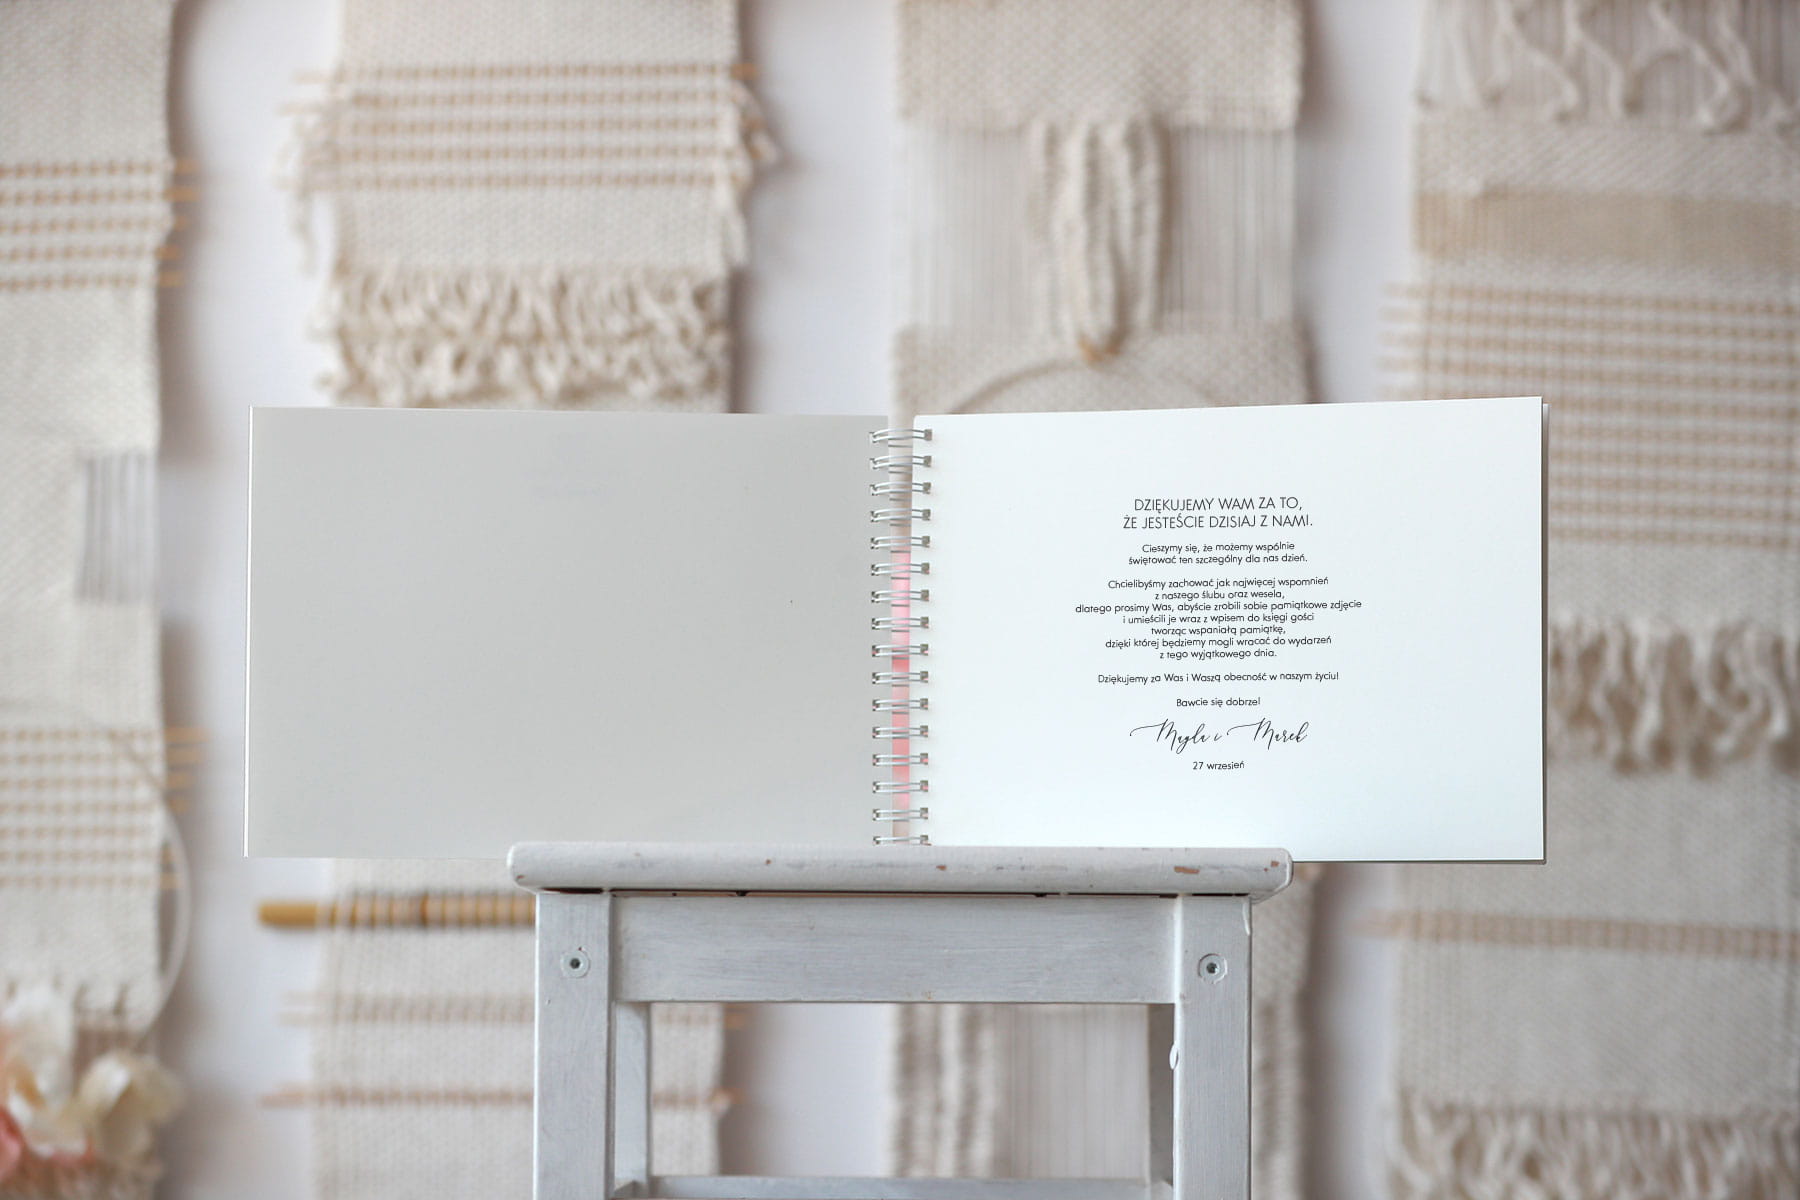 DZIĘKUJEMY WAM ZA TO,
ŻE JESTEŚCIE DZISIAJ Z NAMI.
Cieszymy się, że możemy wspólnie
świętować ten szczególny dla nas dzień.
Chcielibyśmy zachować jak najwięcej wspomnień
z naszego ślubu oraz wesela,
dlatego prosimy Was, abyście zrobili sobie pamiątkowe zdjęcie
i umieścili je wraz z wpisem do księgi gości
tworząc wspaniałą pamiątkę,
dzięki której będziemy mogli wracać do wydarzeń
z tego wyjątkowego dnia.
Dziękujemy za Was i Waszą obecność w naszym życiu!
Bawcie się dobrze!
Magda i Marek
27 wrzesień